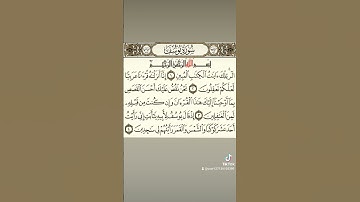 سورة يوسف
بسم الله الرحمن الرحيم
الر تلك ءايت الكتب المبين ١ إنا أنزلنه قرءنا عربيا
لعلكم تعقلون ٢ نحن نقص عليك أحسن القصص
بما أوحينا إليك هذا القرءان وإن كنت من قبله
لمن الغفلين ٣ إذ قال يوسف لأبيه يأبت إني رأيت
أحد عشر كوكبا والشمس والقمر رأيتهم لي سجدين ٤
TikTok